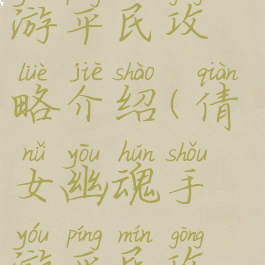 游平民攻
lüè jiè shào qiàn
略介绍(倩
nǚ yōu hún shǒu
女幽魂手
yóu píng mín gōng
游平民攻